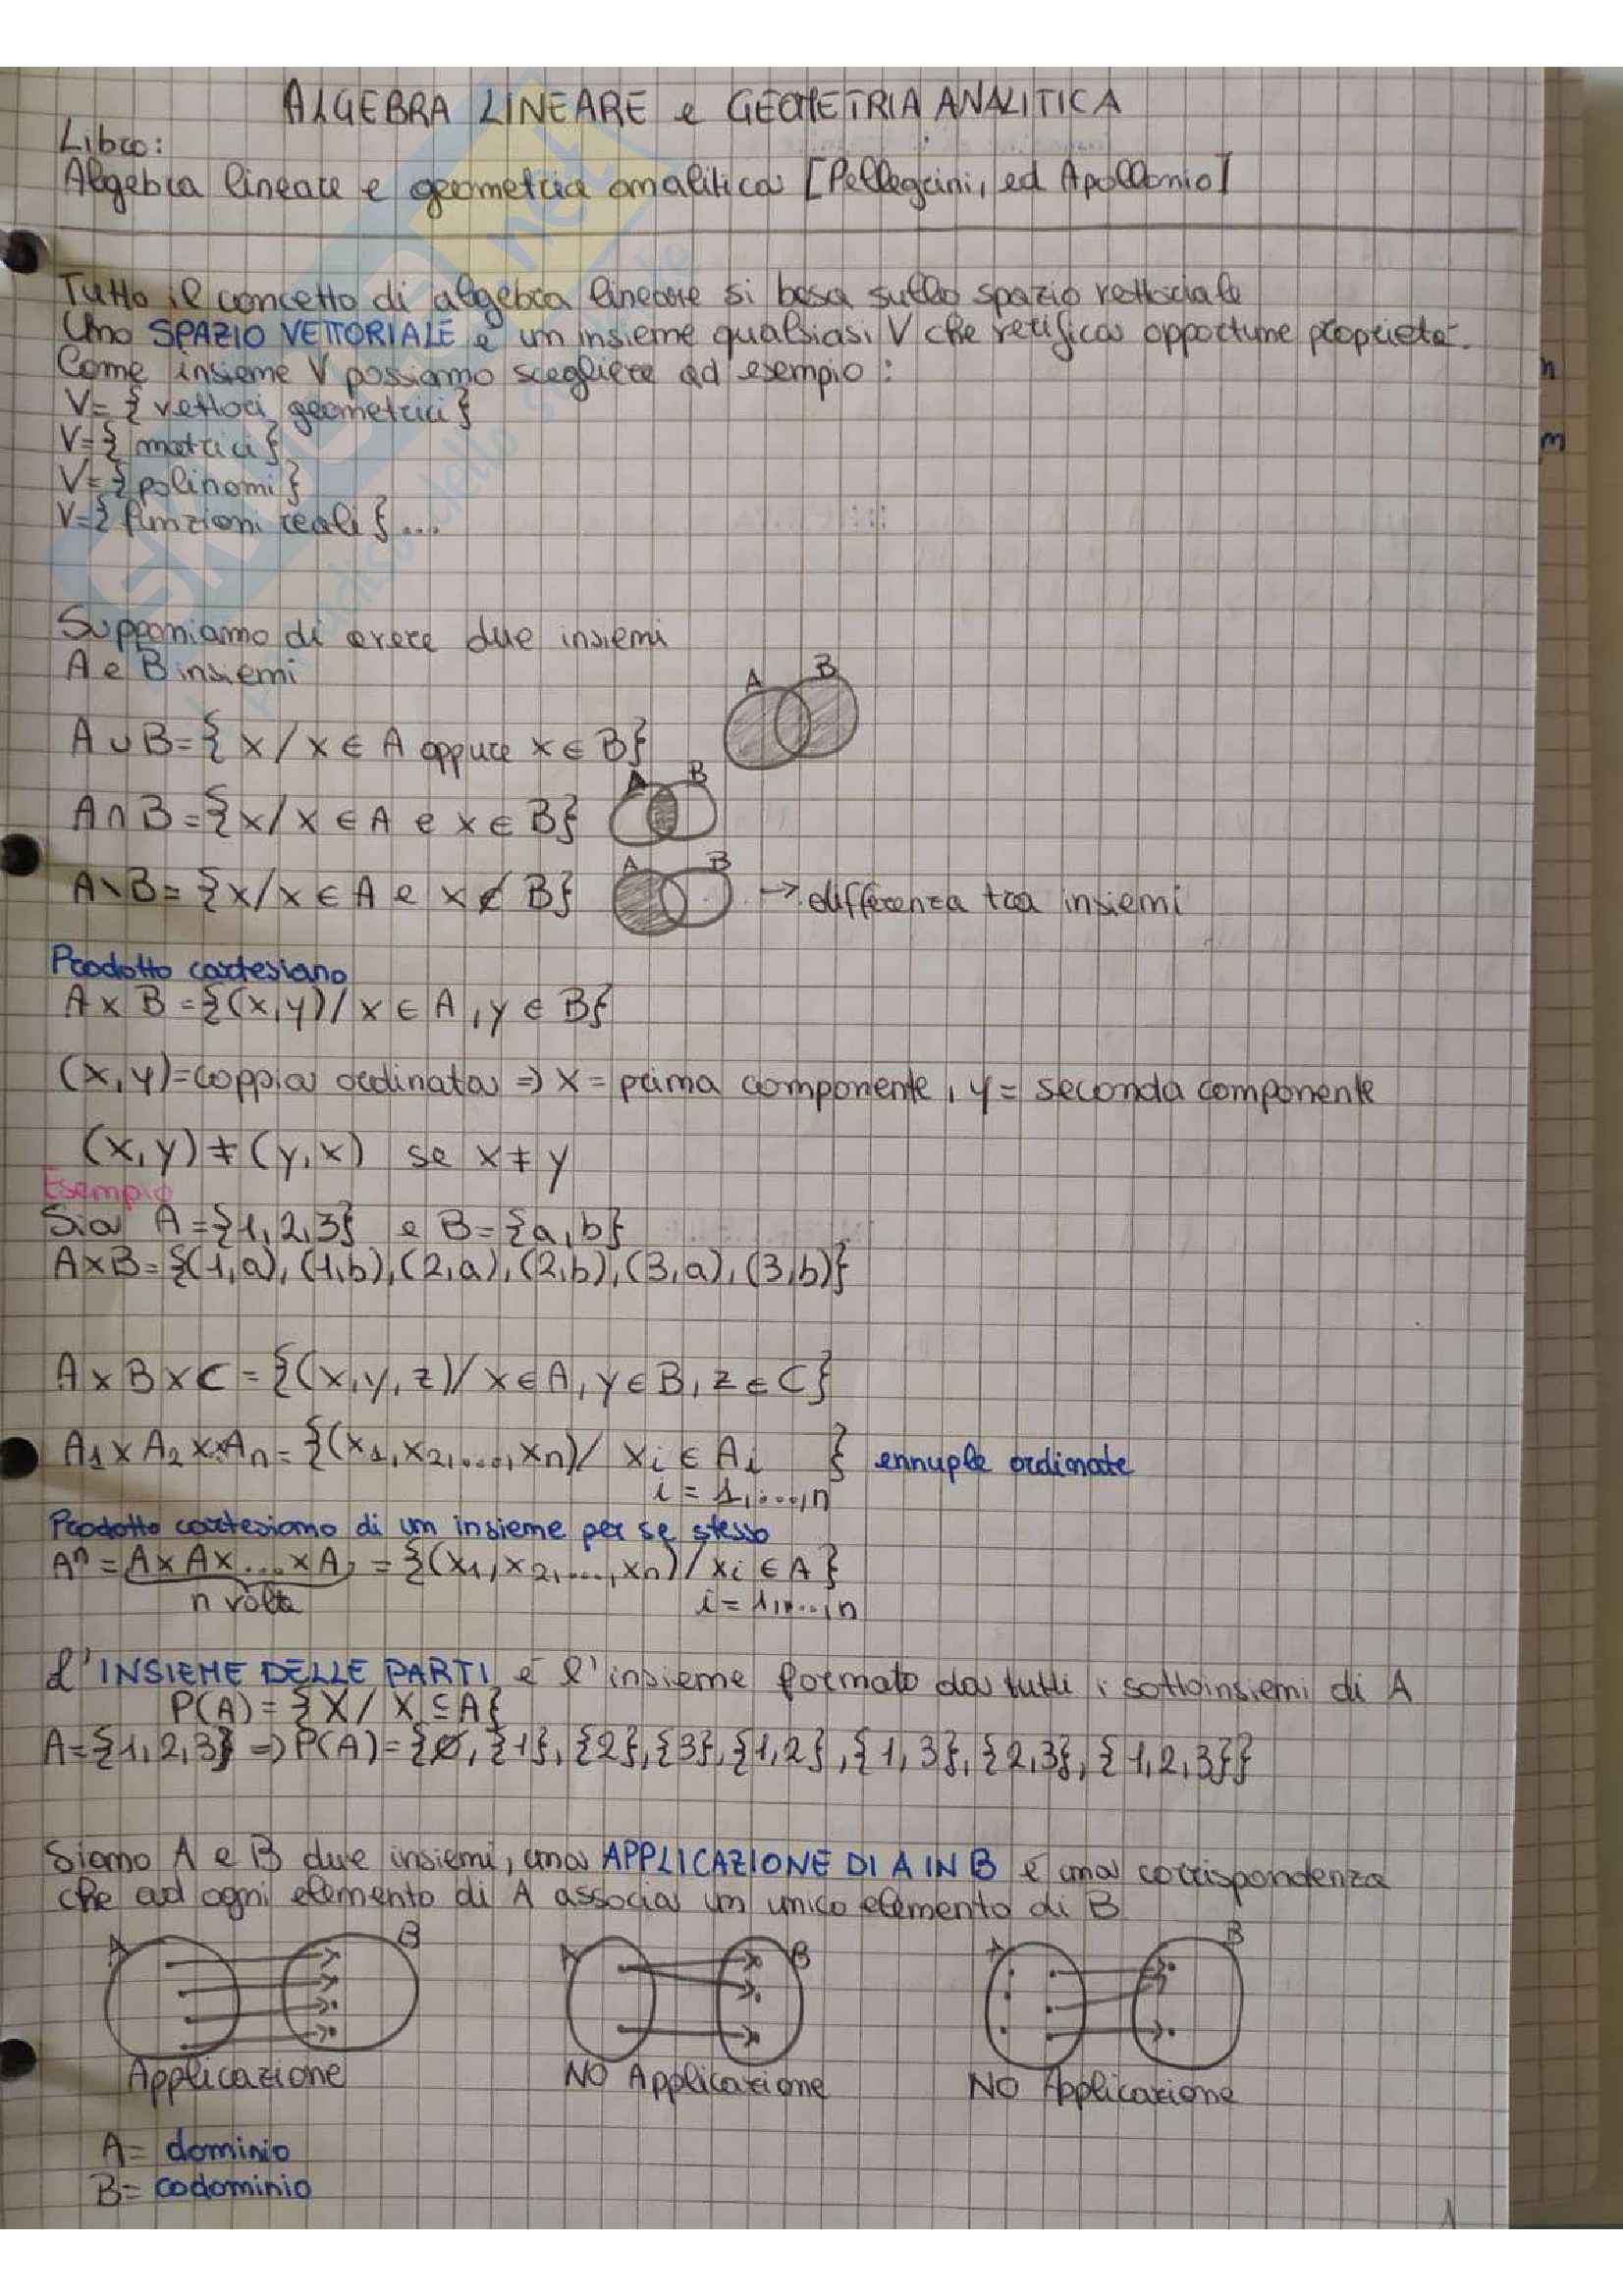 ALGEBRA LINEARE e GEOMETRIA ANALITICA
Libro:
Algebra lineare e geometria analitica [Pellegrini, ed Apollonio]
Tutto il concetto di algebra lineare si basa sullo spazio vettoriale
Uno SPAZIO VETTORIALE è un insieme qualsiasi V che verifica opportune proprietà.
Come insieme V possiamo scegliere ad esempio:
V={vettori geometrici}
V={matrici}
V={polinomi}
V={funzioni reali}...
Supponiamo di avere due insiemi
A e B insiemi
A B
A∪B={x/x∈A oppure x∈B}
A B
A∩B={x/x∈A e x∈B}
A B
A\B={x/x∈A e x∉B} → differenza tra insiemi
Prodotto cartesiano
A×B={(x,y)/x∈A,y∈B}
(x,y)=coppia ordinata ⇒ x=prima componente, y=seconda componente
(x,y)≠(y,x) se x≠y
Esempio
Sia A={1,2,3} e B={a,b}
A×B={(1,a),(1,b),(2,a),(2,b),(3,a),(3,b)}
A×B×C={(x,y,z)/x∈A,y∈B,z∈C}
A₁×A₂×..Aₙ={(x₁,x₂,...,xₙ)/ xᵢ∈Aᵢ } ennuple ordinate
i=1,...,n
Prodotto cartesiano di un insieme per se stesso
Aⁿ=A×A×...×A={(x₁,x₂,...,xₙ)/xᵢ∈A}
n volte i=1,...,n
L'INSIEME DELLE PARTI è l'insieme formato da tutti i sottoinsiemi di A
P(A)={X/X⊆A}
A={1,2,3} ⇒ P(A)={∅,{1},{2},{3},{1,2},{1,3},{2,3},{1,2,3}}
Siano A e B due insiemi, una APPLICAZIONE DI A IN B è una corrispondenza
che ad ogni elemento di A associa un unico elemento di B
A B A B A B
Applicazione NO Applicazione NO Applicazione
A= dominio
B= codominio
1